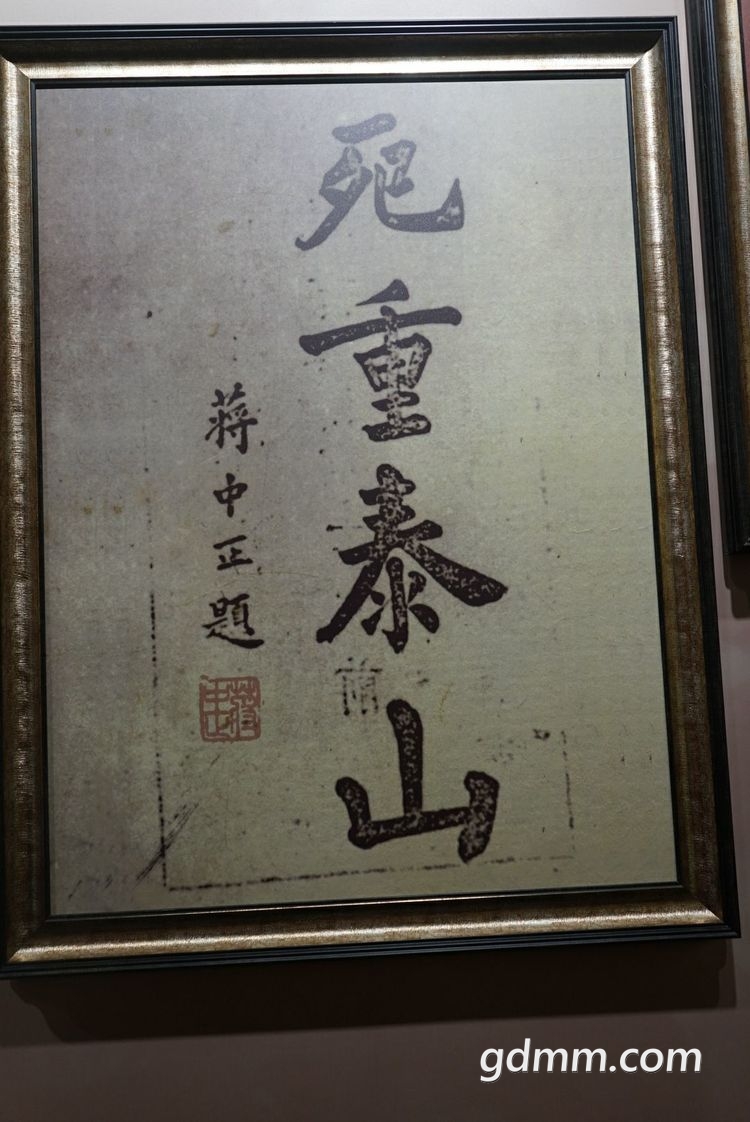 死重泰山
蔣中正題
gdmm.com